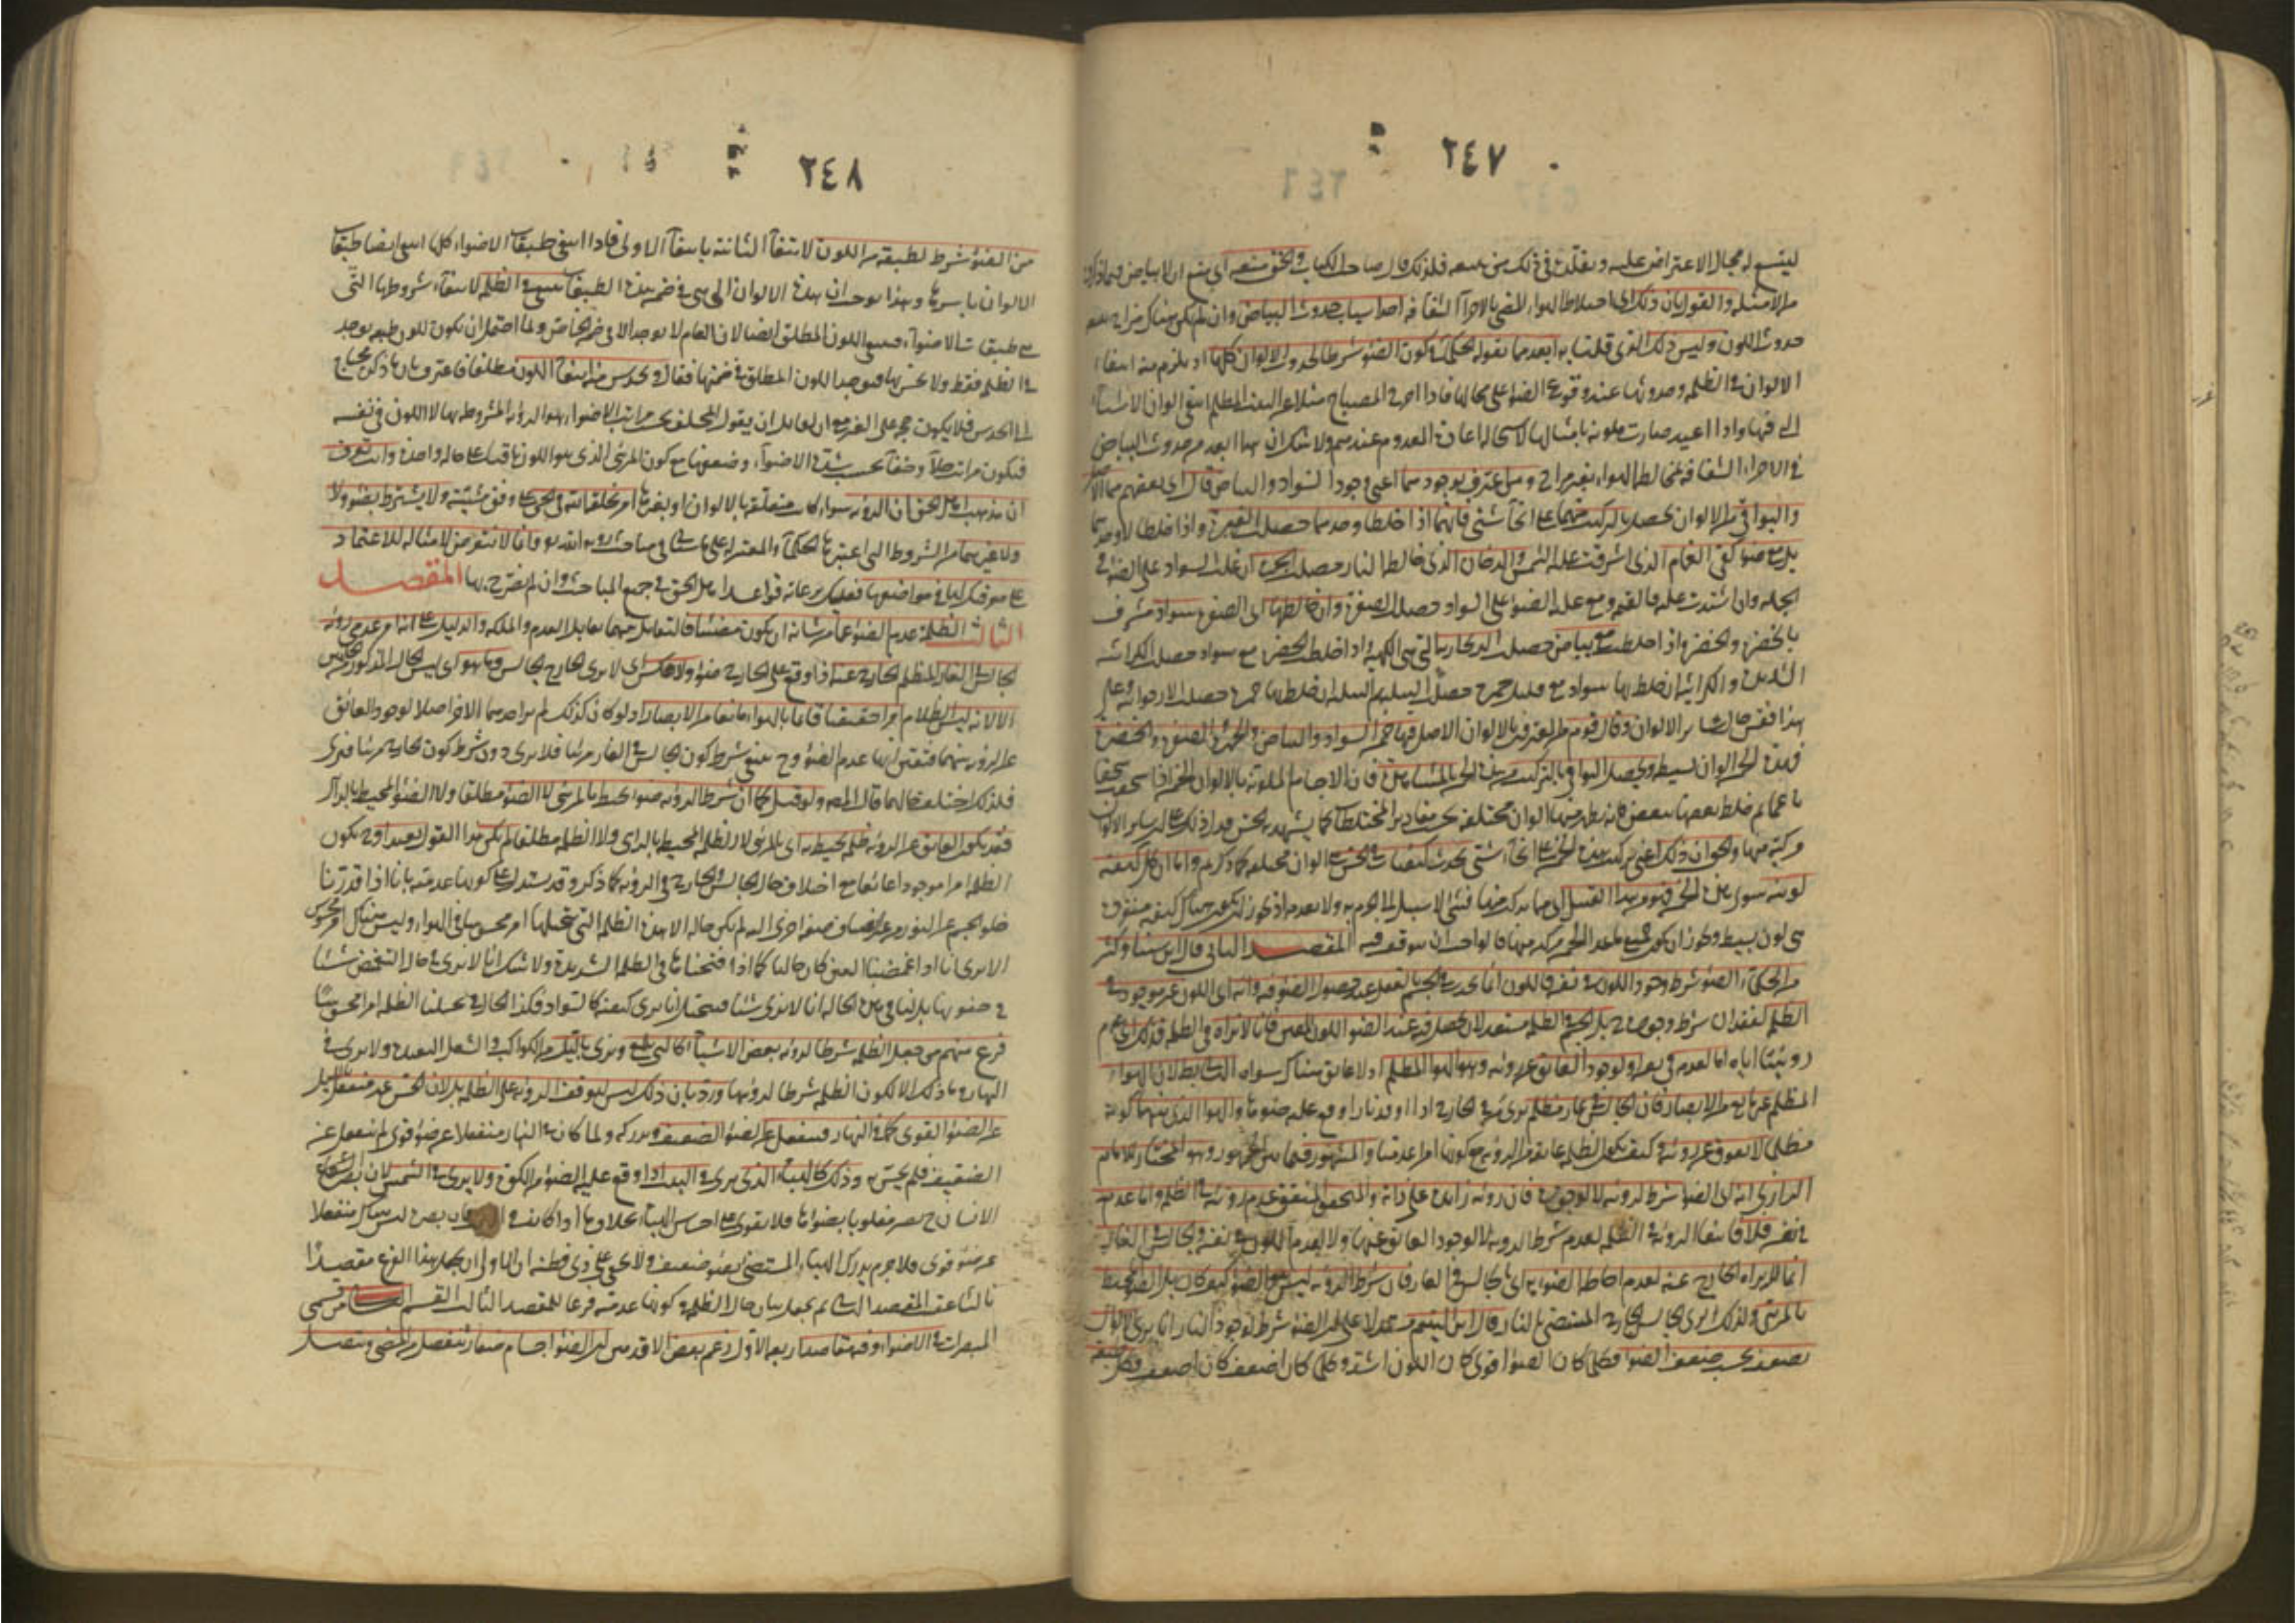 ٢٤٧
ليتسع له مجال الاعتراض عليه ونقلت في ذلك من بعده فلذلك قال صاحب الكتاب والحق منعه أي منع ان لا بياض فيما ذكروه
من الامثلة والقول بان ذلك اي اختلاط الهواء المضي بالاجزاء الشفافة احد اسباب حدوث البياض وان لم يكن هناك مزاج يتبعه
حدوث اللون وليس ذلك الذي قلنا به ابعد مما يقوله الحكماء في كون الضوء شرطا لحدوث الالوان كلها اذ يلزم منه انتفاء
الالوان في الظلمة وحدوثها عند وقوع الضوء على محالها فاذا اخرج المصباح مثلا عن البيت المظلم انتفى الوان الاشياء
التي فيها واذا اعيد صارت ملونة بامثالها لاستحالة اعادة المعدوم عندهم ولا شك ان هذا ابعد من حدوث البياض
في الاجزاء الشفافة بمخالطة الهواء بغير مزاج ومن اعترف بوجودهما اعني وجود السواد والبياض قال اي بعضهم هما الاصل
والبواقي من الالوان تحصل بالتركيب منهما على انحاء شتى فانهما اذا خلطا وحدهما حصلت الغبرة واذا خلطا لا وحدهما
بل مع ضوء كفى الغمام الذي اشرقت عليه الشمس والدخان الذي خالطه النار حصلت الحمرة ان غلب السواد على الضوء في
الجملة وان اشتدت غلبته فالقتمة ومع غلبة الضوء على السواد حصلت الصفرة وان خالطها اي الصفرة سواد مشرف
بالخضرة والخضرة اذا خلطت مع بياض حصلت الزنجارية التي هي الكهبة واذا خلطت الخضرة مع سواد حصلت الكراثية
الشديدة والكراثية ان خلط بها سواد مع قليل حمرة حصلت النيلية ثم النيلية ان خلط بها حمرة حصلت الارجوانية وعلى
هذا فقس حال سائر الالوان وقال قوم من المعترفين بالالوان الاصل فيها خمسة السواد والبياض والحمرة والصفرة والخضرة
فهذه الخمسة الوان بسيطة ويحصل البواقي بالتركيب من هذه الخمسة بالمشاهدة فان الاجسام الملونة بالالوان الخمسة اذا سحقت سحقا
ناعما ثم خلط بعضها ببعض فانه يظهر منها الوان مختلفة بحسب مقادير المختلطات كما يشهد به الحس فدل ذلك على ان سائر الالوان
مركبة منها والحق ان ذلك اعني تركيب هذه الخمسة على انحاء شتى يحدث كيفيات في الحس هي الوان مختلفة كما ذكرتم واما ان كل كيفية
لونية سوى هذه الخمسة فهو من هذا القبيل اي مما يتركب منها فشيء لا سبيل الى الجزم به ولا بعدمه اذ يجوز ان يكون هناك كيفية مفردة
هي لون بسيط ويجوز ان يكون جميع ما عدا الخمسة مركبة منها قالوا حب ان يتوقف فيه المقصد الثاني قال ابن سينا وكثير
من الحكماء الضوء شرط وجود اللون في نفسه فاللون انما يحدث في الجسم بالفعل عند حصول الضوء فيه وانه اي اللون غير موجود في
الظلمة لفقدان شرط وجوده بل الجسم في الظلمة مستعد لان يحصل فيه عند الضوء اللون المعين فانا لا نراه في الظلمة فذلك اي عدم
رؤيتنا اياه اما لعدمه في نفسه او لوجود العائق عن رؤيته وهو الهواء المظلم اذ لا عائق هناك سواه الثاني باطل لان الهواء
المظلم غير مانع من الابصار فان الجالس في غار مظلم يرى من في الخارج اذا اوقد نارا وقع عليه ضوءها والهواء الذي بينهما لكونه
مظلما لا يعوق عن رؤيته كيف تكون الظلمة عائقة من الرؤية مع كونها امرا عدميا والمشهور فيما بين الجمهور وهو المختار للامام
الرازي انه اي الضوء شرط لرؤيته لا لوجوده فان رؤيته زائدة على ذاته والمتحقق المتيقن عدم رؤيته في الظلمة واما عدمه
في نفسه فلا فانتفاء الرؤية في الظلمة لعدم شرط الرؤية لا لوجود العائق عنها ولا لعدم اللون في نفسه والجالس في الغار
انما لا يراه الخارج عنه لعدم احاطة الضوء به اي بالجالس في الغار فان شرط الرؤية ليس هو الضوء كيف كان بل الضوء المحيط
بالمرئي ولذلك يرى الجالس الخارج المستضي بالنار قال ابن الهيثم مستدلا على ان الضوء شرط لوجود النار انا نرى الالوان
تضعف بحسب ضعف الضوء فكلما كان الضوء اقوى كان اللون اشد وكلما كان اضعف كان اضعف فكل طبقة
٢٤٨
من الضوء شرط لطبقة من اللون لانتفاء الثانية بانتفاء الاولى فاذا انتفى طبقات الاضواء كلها انتفى ايضا طبقات
الالوان باسرها وهذا يوجب ان هذه الالوان التي هي في ضمن هذه الطبقات تنتفي في الظلمة لانتفاء شروطها التي
هي طبقات الاضواء فينتفي اللون المطلق ايضا لان العام لا يوجد الا في ضمن الخاص ولما احتمل ان يكون للون طبقة يوجد
في الظلمة فقط ولا نحس بها فيوجد اللون المطلق في ضمنها فقال ويحدس من هذا انتفاء اللون مطلقا فاعترف بان ما ذكره يحتاج
الى الحدس فلا يكون حجة على الغير مع ان لقائل ان يقول المختلف بحسب مراتب الاضواء هو الرؤية المشروطة بها لا اللون في نفسه
فيكون مراتب جلاء وخفاء بحسب شدة الاضواء وضعفها مع كون المرئي الذي هو اللون باقيا على حالة واحدة وانت تعرف
ان مذهب اهل الحق ان الرؤية سواء كانت متعلقة بالالوان او بغيرها امر يخلقه الله في الحي على وفق مشيئته ولا يشترط بضوء ولا
ولا غيرهما من الشروط التي اعتبرها الحكماء والمعتزلة على ما سيأتي في مباحث رؤية الله تعالى وانا لا نتعرض لامثاله للاعتماد
على معرفتك لها في مواضعها فعليك برعاية قواعد اهل الحق في جميع المباحث وان لم نصرح بها المقصد
الثالث الظلمة عدم الضوء عما من شانه ان يكون مضيئا فالتقابل بينهما تقابل العدم والملكة والدليل على انه امر عدمي رؤية
الجالس في الغار المظلم الخارج عنه اذا وقع على الخارج ضوء ولا عكس اي لا يرى الخارج الجالس وما هو اي ليس الحال المذكور من الجانبين
الا لانه ليس الظلام امرا حقيقيا قائما بالهواء مانعا من الابصار اذ لو كان كذلك لم ير احدهما الاخر اصلا لوجود العائق
عن الرؤية بينهما فتعين انها عدم الضوء وح ينتفي شرط كون الجالس في الغار مرئيا فلا يرى دون شرط كون الخارج مرئيا فيرى
فلذلك اختلف حالهما قال المص ولو قيل كما ان شرط الرؤية ضوء محيط بالمرئي لا الضوء مطلقا ولا الضوء المحيط بالرائي
فقد يكون العائق عن الرؤية ظلمة محيط به اي بالمرئي لا الظلمة المحيط بالرائي ولا الظلمة مطلقا لم يكن هذا القول بعيدا وح يكون
الظلمة امرا موجودا عائقا مع اختلاف حال الجالس والخارج في الرؤية كما ذكر وقد يستدل على كونها عدمية بانا اذا قدرنا
خلو الجسم عن النور من غير انضياف صفة اخرى اليه لم يكن حاله الا هذه الظلمة التي نتخيلها امر محسوسا في الهواء وليس هناك امر محسوس
الا يرى انا اذا غمضنا العين كان حالنا كما اذا فتحناها في الظلمة الشديدة ولا شك انا لا نرى في حال التغميض شيئا
في جفونها بل انا في هذه الحالة انا لا نرى شيئا فنتخيل انا نرى كيفية كالسواد فكذا الحال في تخيلنا الظلمة امرا محسوسا
فرع منهم من جعل الظلمة شرطا لرؤية بعض الاشياء كالتي تلمع ونرى بالليل من الكواكب والشعل البعيدة ولا يرى في
النهار وما ذلك الا لكون الظلمة شرطا لرؤيتها ورد بان ذلك ليس لتوقف الرؤية على الظلمة بل لان الحس غير منفعل بالليل
عن الضوء القوي كما في النهار فينفعل عن الضوء الضعيف ويدركه ولما كان في النهار منفعلا عن ضوء قوي لم ينفعل عن
الضعيف فلم يحس به وذلك كالهباء الذي يرى في البيت اذا وقع عليه الضوء من الكوة ولا يرى في الشمس لان بصر
الانسان ح يصير مغلوبا بضوءها فلا يقوى على احساس الهباء بخلاف ما اذا كان في البيت فان بصره ليس هناك منفعلا
عن ضوء قوي فلا جرم يدرك الهباء المستضي بضوء ضعيف ولا يخفى على ذي فطنة ان الاولى ان يجعل هذا الفرع مقصدا
ثالثا عقب المقصد الثاني ثم يجعل بيان حال الظلمة وكونها عدمية فرعا للمقصد الثالث القسم الثاني من قسمي
المبصرات في الاضواء وفيه مقاصد اربعة الاول زعم بعض الاقدمين ان الضوء اجسام صغار تنفصل من المضي وتتصل